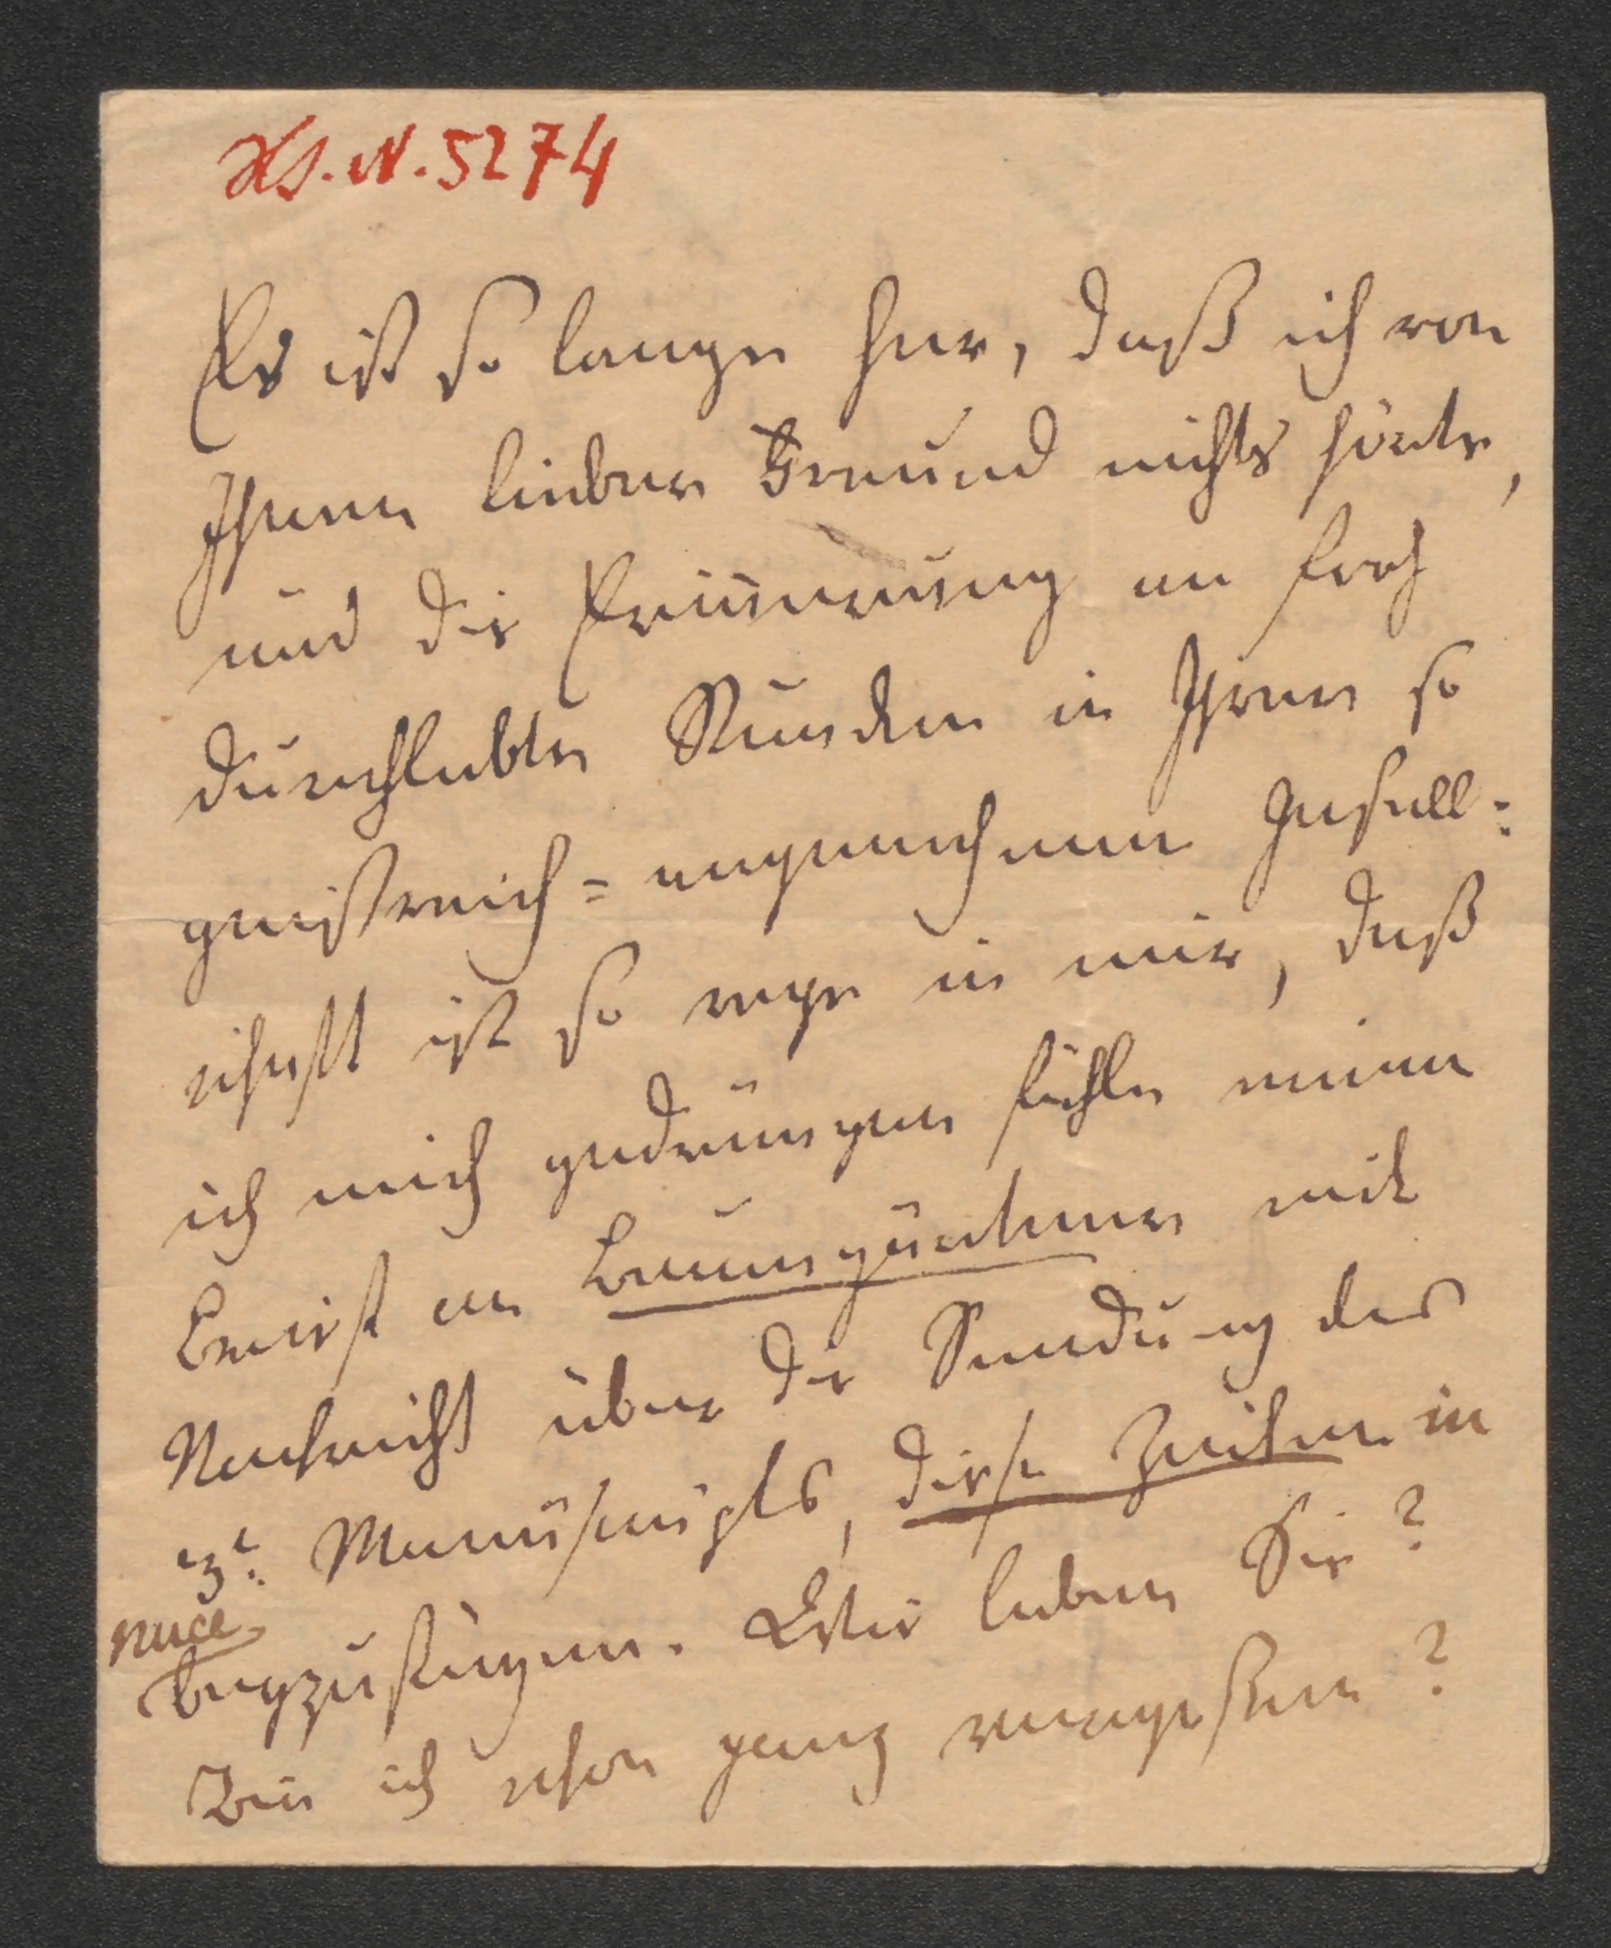 Hs. N. 5274
Es ist so lange her, daß ich von
Ihnen lieber Freund nichts hörte,
und die Erinnerung an froh
durchlebte Stunden in Ihrer so
geistreich=angenehmen Gesell=
schaft ist so rege in mir, daß
ich mich gedrungen fühle meinem
Brief an Baumgärtner mit
Nachricht über die Sendung des
Manuscripts, diese Zeilen in
nuce
beyzufügen. Wie leben Sie?
Bin ich schon ganz vergeßen?